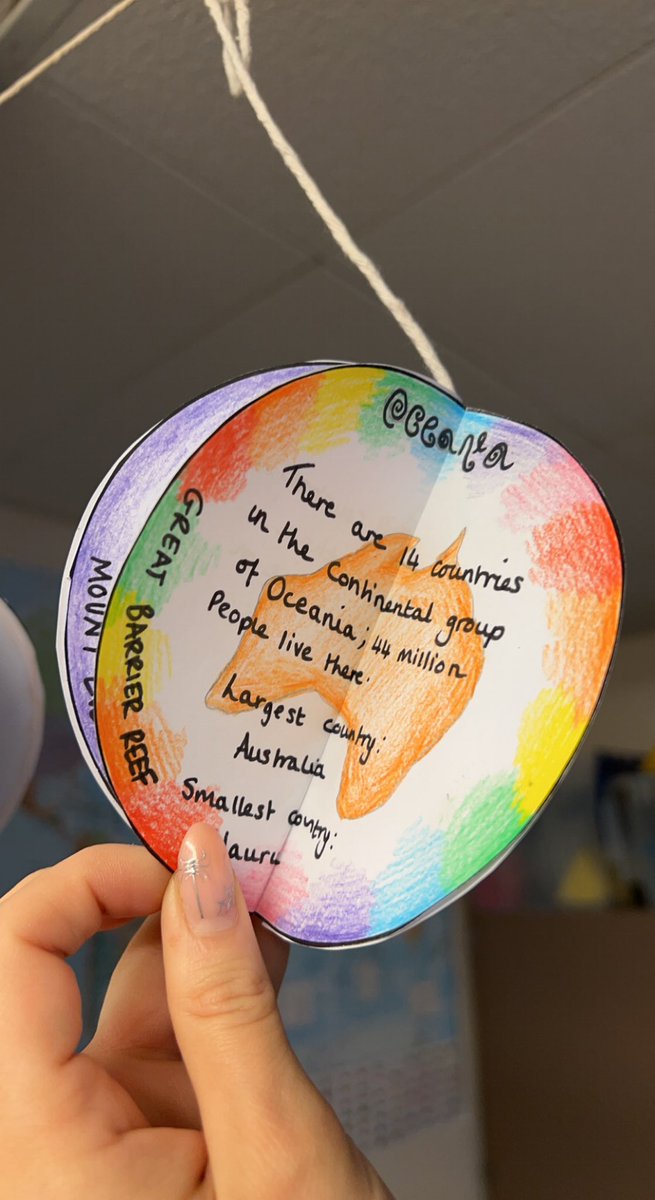 Oceania
There are 14 countries
in the Continental group
of Oceania; 44 million
People live there.
Largest country:
Australia
Smallest country:
GREAT BARRIER REEF
MOUNT